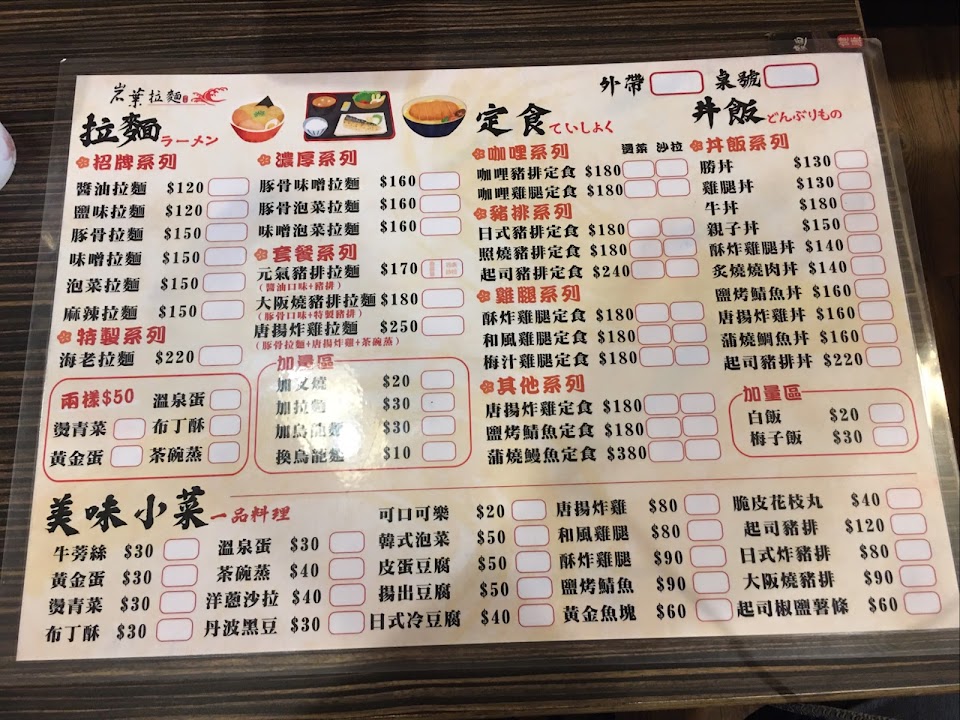 岩葉拉麵
外帶 桌號
拉麵 ラーメン
招牌系列
醬油拉麵 $120
鹽味拉麵 $120
豚骨拉麵 $150
味噌拉麵 $150
泡菜拉麵 $150
麻辣拉麵 $150
特製系列
海老拉麵 $220
兩樣$50 溫泉蛋
燙青菜 布丁酥
黃金蛋 茶碗蒸
濃厚系列
豚骨味噌拉麵 $160
豚骨泡菜拉麵 $160
味噌泡菜拉麵 $160
套餐系列
元氣豬排拉麵 $170
(醬油口味+豬排)
大阪燒豬排拉麵 $180
(豚骨口味+特製豬排)
唐揚炸雞拉麵 $250
(豚骨拉麵+唐揚炸雞+茶碗蒸)
加量區
加叉燒 $20
加拉麵 $30
加烏龍麵 $30
換烏龍麵 $10
定食 ていしょく
咖哩系列 湯菜 沙拉
咖哩豬排定食 $180
咖哩雞腿定食 $180
豬排系列
日式豬排定食 $180
照燒豬排定食 $180
起司豬排定食 $240
雞腿系列
酥炸雞腿定食 $180
和風雞腿定食 $180
梅汁雞腿定食 $180
其他系列
唐揚炸雞定食 $180
鹽烤鯖魚定食 $180
蒲燒鰻魚定食 $380
丼飯 どんぶりもの
丼飯系列
勝丼 $130
雞腿丼 $130
牛丼 $180
親子丼 $150
酥炸雞腿丼 $140
炙燒燒肉丼 $140
鹽烤鯖魚丼 $160
唐揚炸雞丼 $160
蒲燒鯛魚丼 $160
起司豬排丼 $220
加量區
白飯 $20
梅子飯 $30
美味小菜 一品料理
牛蒡絲 $30
黃金蛋 $30
燙青菜 $30
布丁酥 $30
溫泉蛋 $30
茶碗蒸 $40
洋蔥沙拉 $40
丹波黑豆 $30
可口可樂 $20
韓式泡菜 $50
皮蛋豆腐 $50
揚出豆腐 $50
日式冷豆腐 $40
唐揚炸雞 $80
和風雞腿 $80
酥炸雞腿 $90
鹽烤鯖魚 $90
黃金魚塊 $60
脆皮花枝丸 $40
起司豬排 $120
日式炸豬排 $80
大阪燒豬排 $90
起司椒鹽薯條 $60